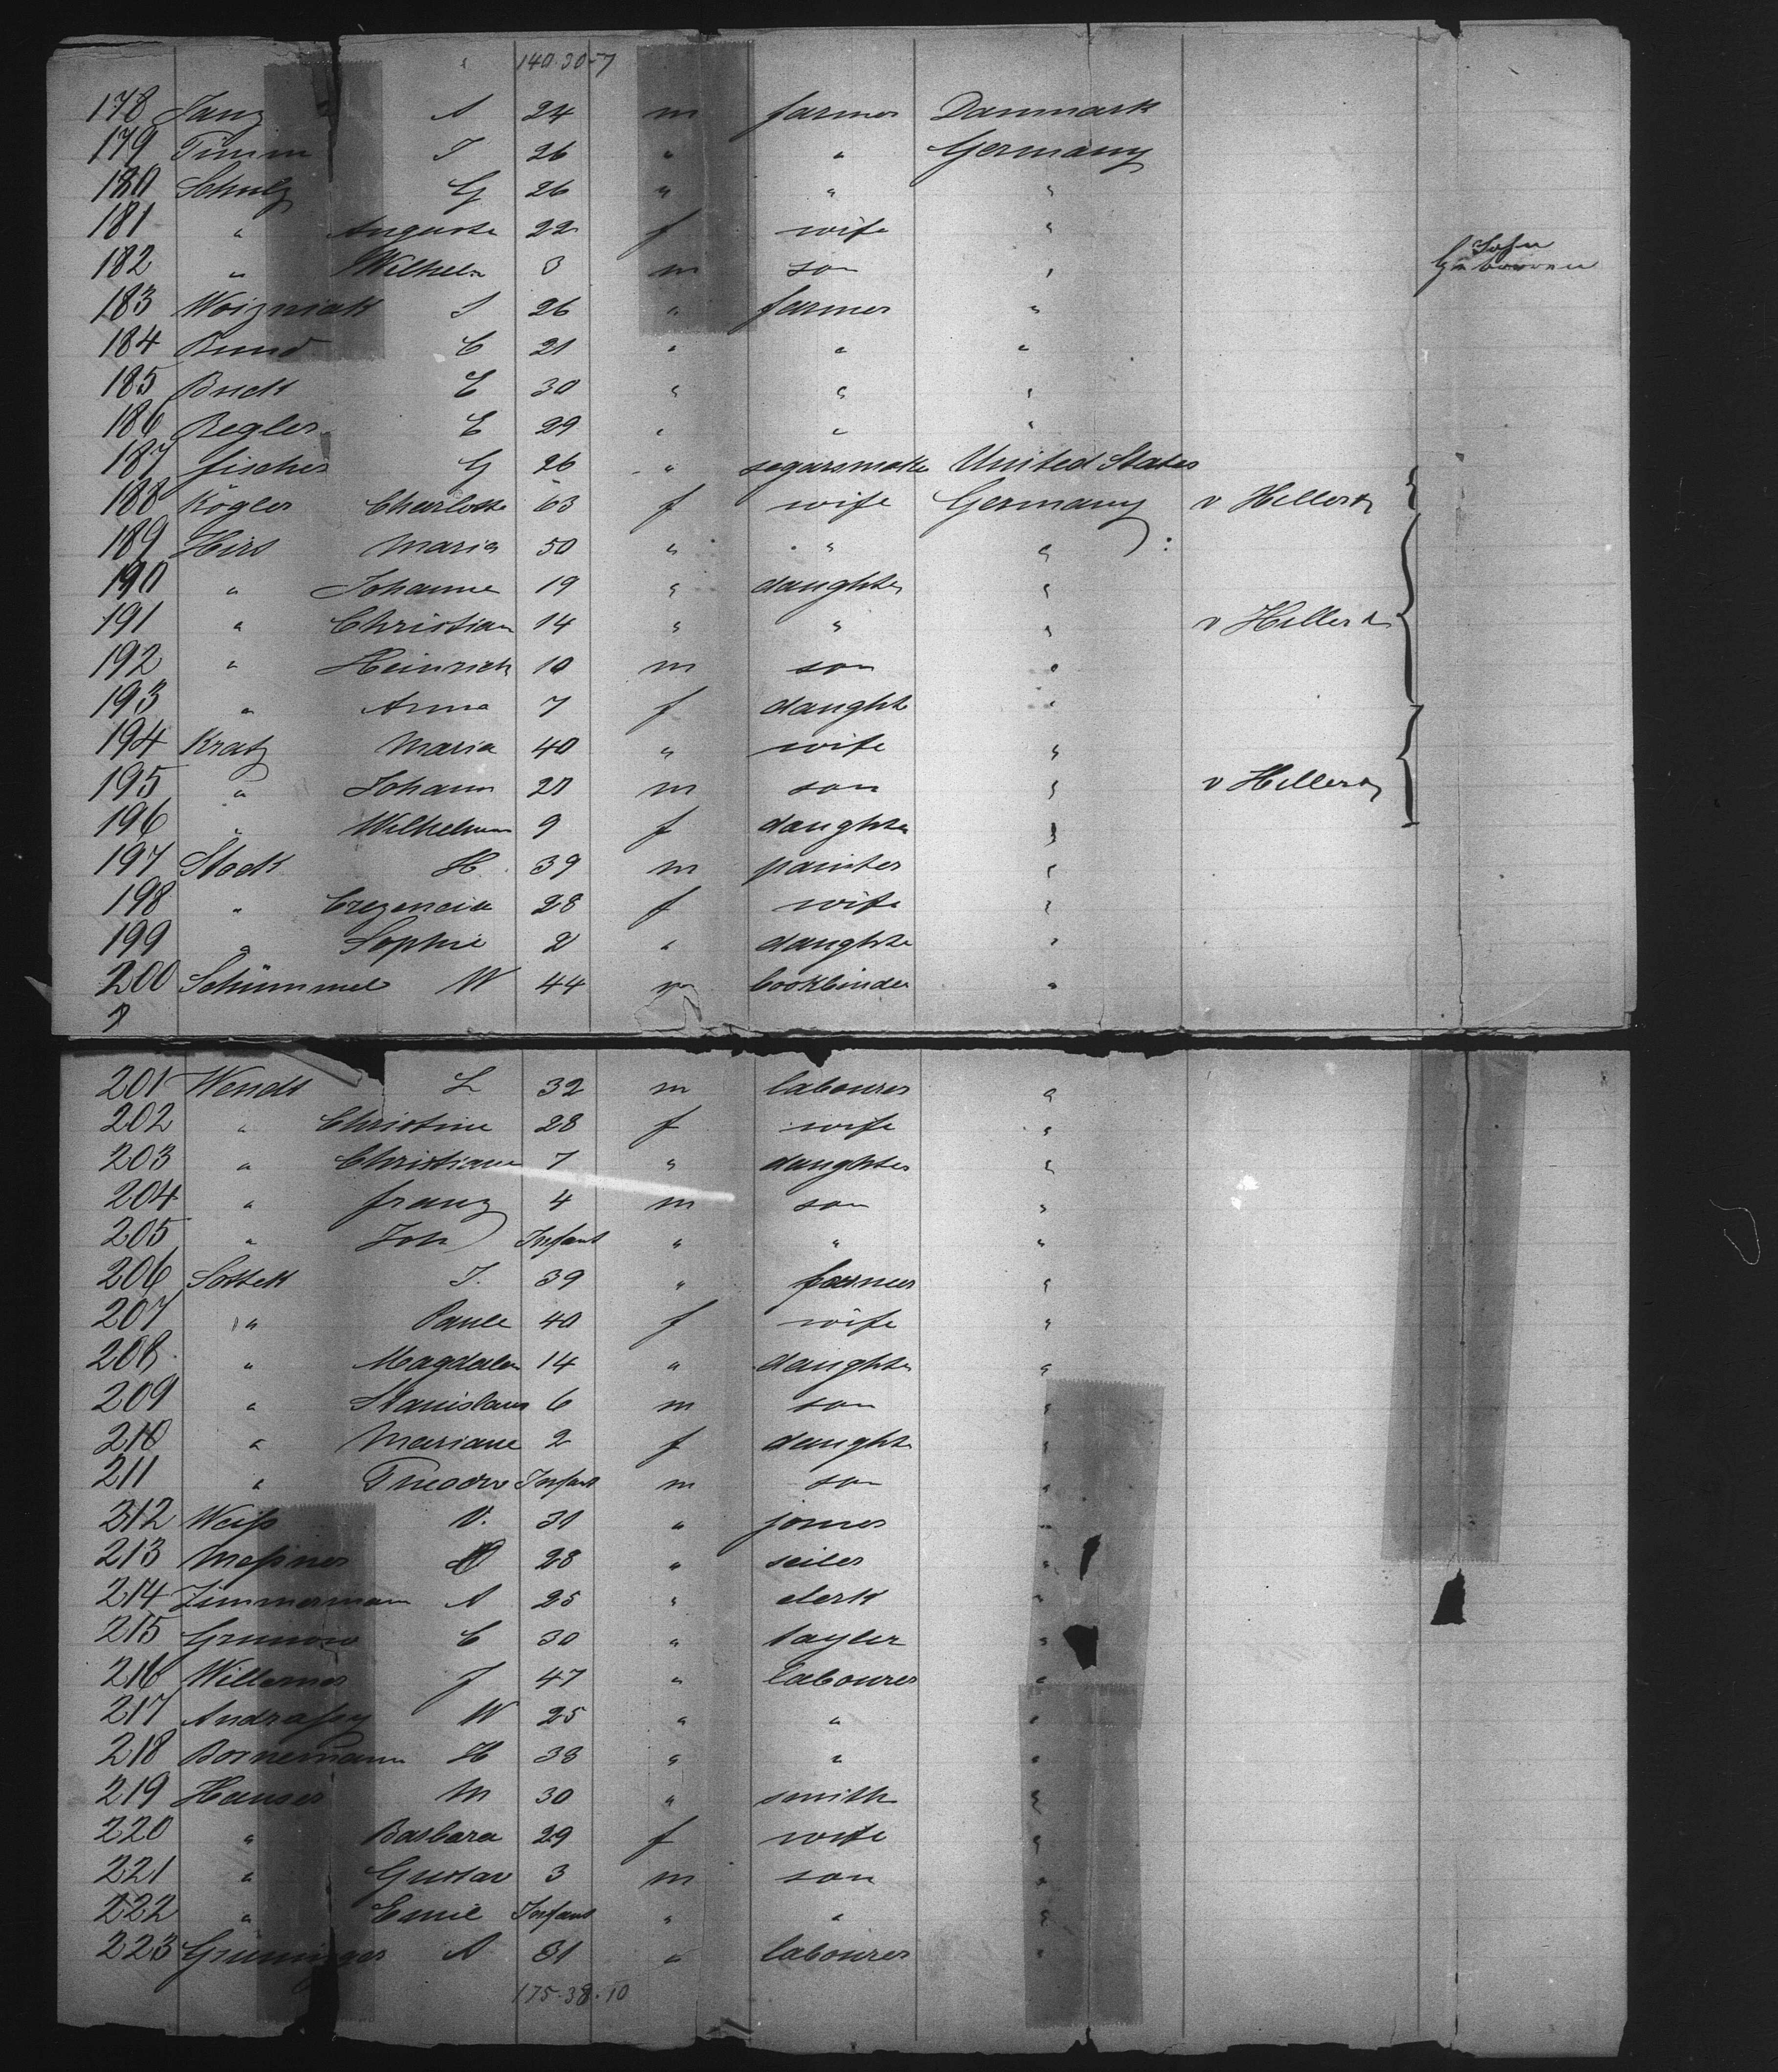 140-30-7
178 Janz A 24 m farmer Danmark
179 Timm J 26 " " Germany
180 Schulz G 26 " " "
181 " Auguste 22 f wife "
182 " Wilhelm 3 m son "
183 Woizniak J 26 " farmer "
184 Bund C 21 " " "
185 Buck E 30 " " "
186 Regler E 29 " " "
187 fischer G 26 " segarsmake United States
188 Kögler Charlotte 63 f wife Germany v Hillern
189 Hirs Maria 50 " " "
190 " Johanne 19 " daughter "
191 " Christian 14 " " " v Hillern
192 " Heinrich 10 m son "
193 " Anna 7 f daught "
194 Kratz Maria 40 " wife "
195 " Johann 21 m son " v Hillern
196 " Wilhelmin 9 f daughter "
197 Stock H. 39 m painter "
198 " Crezencia 28 f wife "
199 " Sophie 2 " daughte "
200 Schümmel W 44 m bookbinder "
201 Wendt L 32 m labourer "
202 " Christine 28 f wife "
203 " Christiane 7 " daughter "
204 " franz 4 m son "
205 " Joh Infant " " "
206 Sottek J. 39 " farmer "
207 " Paule 40 f wife "
208 " Magdalen 14 " daughter "
209 " Stanislaus 6 m son "
210 " Mariane 2 f daught "
211 " Theodor Infant m son "
212 Weiß V. 31 " joiner "
213 Meßner 28 " seiler "
214 Zimmermann A 25 " clerk "
215 Grunow C 30 " tayler "
216 Willemer J 47 " labourer "
217 Andraßey W 25 " " "
218 Bornemann H 38 " " "
219 Hauser M 30 " smith "
220 " Barbara 29 f wife "
221 " Gustav 3 m son "
222 " Emil Infant " " "
223 Gruninger A 31 " labourer "
175-38-10